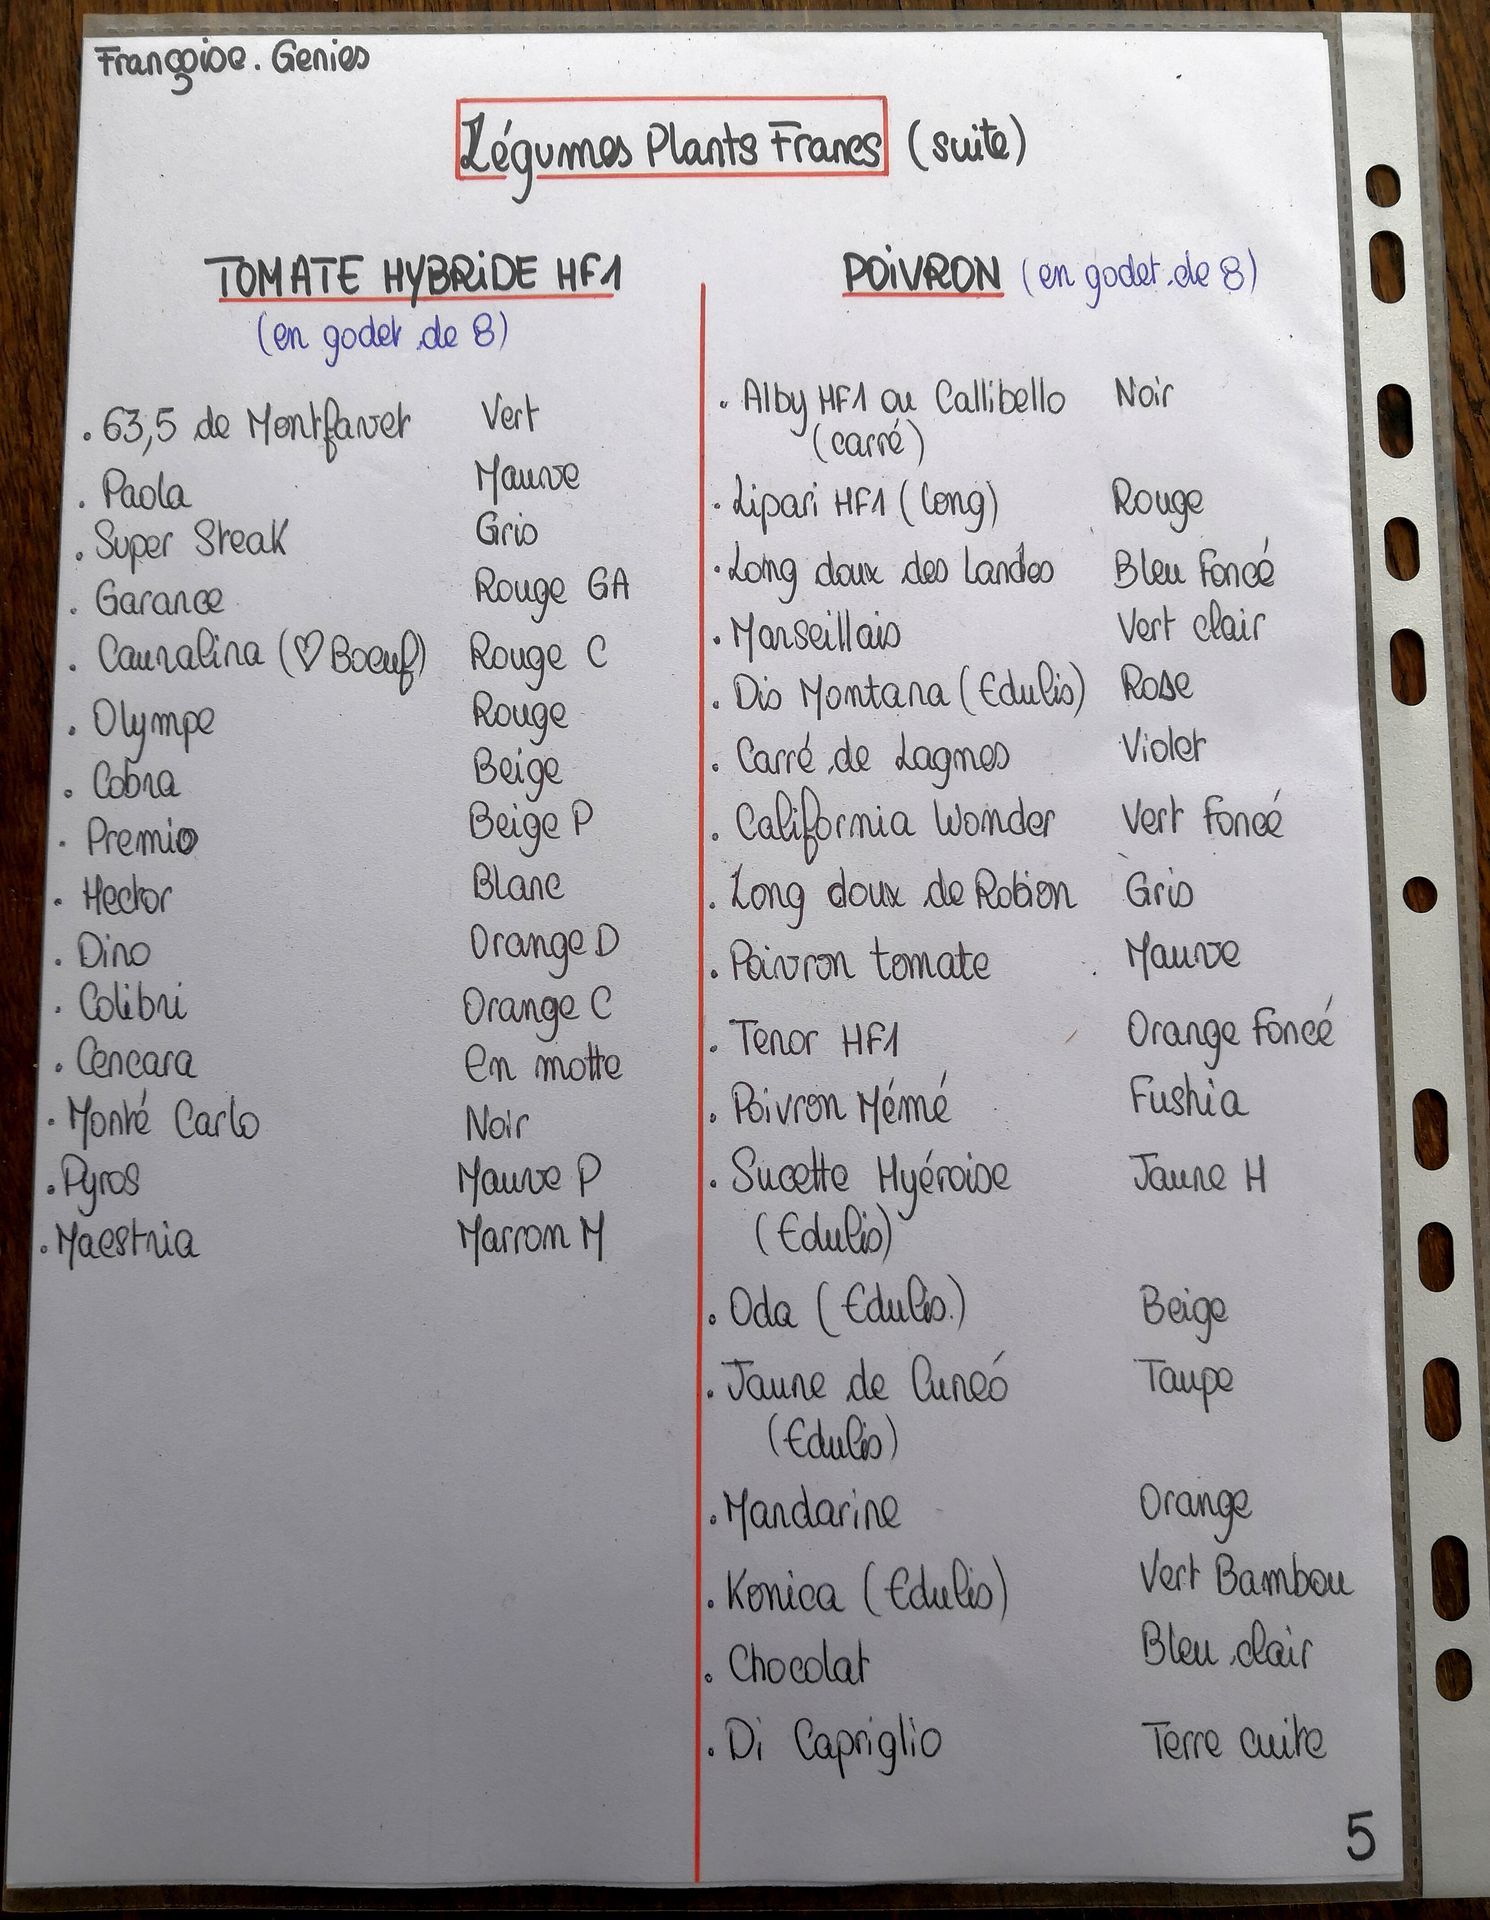 Françoise. Genies
Légumes Plants Francs (suite)
TOMATE HYBRIDE HF1
(en godet de 8)
. 63,5 de Montfavet Vert
. Paola Mauve
. Super Steak Gris
. Garance Rouge GA
. Cauralina (♡ Boeuf) Rouge C
. Olympe Rouge
. Cobra Beige
. Premio Beige P
. Hector Blanc
. Dino Orange D
. Colibri Orange C
. Cencara En motte
. Monté Carlo Noir
. Pyros Mauve P
. Maestria Marron M
POIVRON (en godet de 8)
. Alby HF1 ou Callibello Noir
(carré)
. Lipari HF1 (long) Rouge
. Long doux des Landes Bleu Foncé
. Marseillais Vert clair
. Dis Montana (Edulis) Rose
. Carré de Lagnes Violet
. California Wonder Vert Foncé
. Long doux de Robion Gris
. Poivron tomate Mauve
. Tenor HF1 Orange Foncé
. Poivron Mémé Fushia
. Sucette Hyéroise Jaune H
(Edulis)
. Oda (Edulis.) Beige
. Jaune de Cunéó Taupe
(Edulis)
. Mandarine Orange
. Konica (Edulis) Vert Bambou
. Chocolat Bleu clair
. Di Capriglio Terre cuite
5